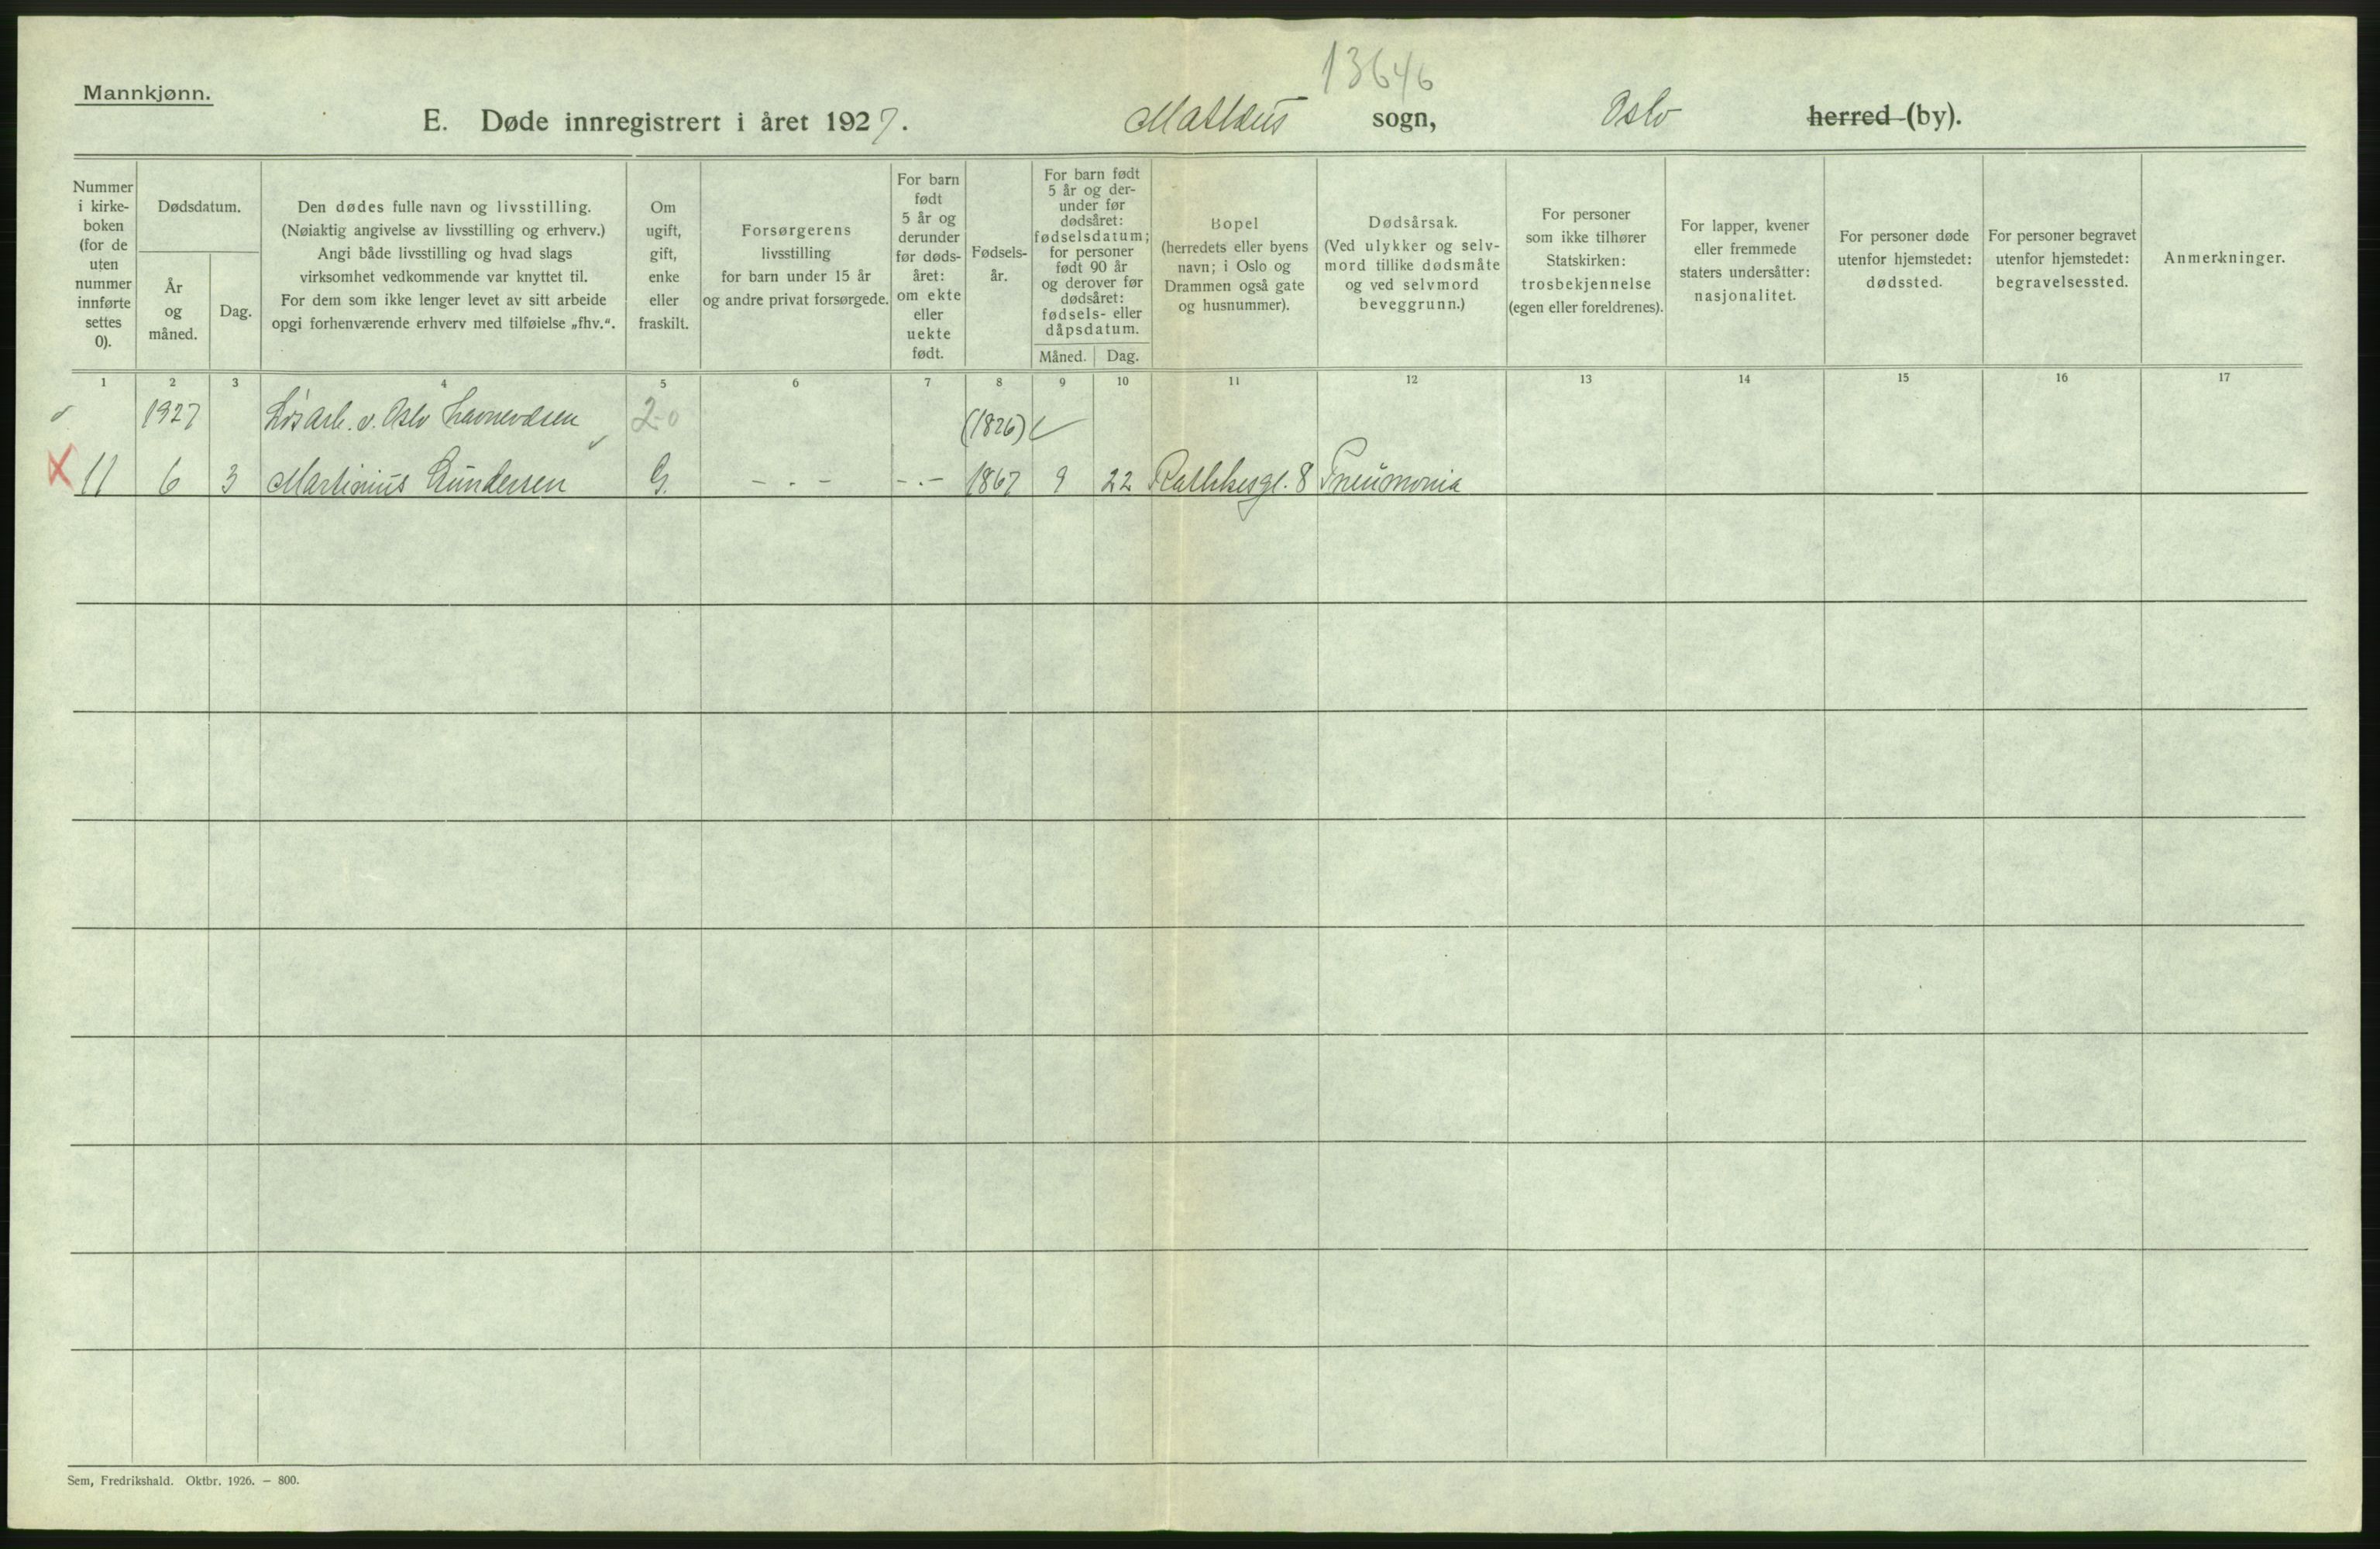 13646
Mannkjønn.
E. Døde innregistrert i året 1927. Matteus sogn, Oslo herred (by).
Nummer
i kirke-
boken
(for de
uten
nummer
innførte
settes
0).
Dødsdatum.
År
og
måned.
Dag.
Den dødes fulle navn og livsstilling.
(Nøiaktig angivelse av livsstilling og erhverv.)
Angi både livsstilling og hvad slags
virksomhet vedkommende var knyttet til.
For dem som ikke lenger levet av sitt arbeide
opgi forhenværende erhverv med tilføielse „fhv.“.
Om
ugift,
gift,
enke
eller
fraskilt.
Forsørgerens
livsstilling
for barn under 15 år
og andre privat forsørgede.
For barn
født
5 år og
derunder
før døds-
året:
om ekte
eller
uekte
født.
Fødsels-
år.
For barn født
5 år og der-
under før
dødsåret:
fødselsdatum;
for personer
født 90 år
og derover før
dødsåret:
fødsels- eller
dåpsdatum.
Måned. Dag.
Bopel
(herredets eller byens
navn; i Oslo og
Drammen også gate
og husnummer).
Dødsårsak.
(Ved ulykker og selv-
mord tillike dødsmåte
og ved selvmord
beveggrunn.)
For personer
som ikke tilhører
Statskirken:
trosbekjennelse
(egen eller foreldrenes).
For lapper, kvener
eller fremmede
staters undersåtter:
nasjonalitet.
For personer døde
utenfor hjemstedet:
dødssted.
For personer begravet
utenfor hjemstedet:
begravelsessted.
Anmerkninger.
1 2 3 4 5 6 7 8 9 10 11 12 13 14 15 16 17
1927 Løsarb. v. Oslo havnevæsen 20 (1826)
11 6 3 Martinius Gundersen G. - . - - . - 1867 9 22 Rathkesgt. 8 Pneumonia
Sem, Fredrikshald. Oktbr. 1926. — 800.